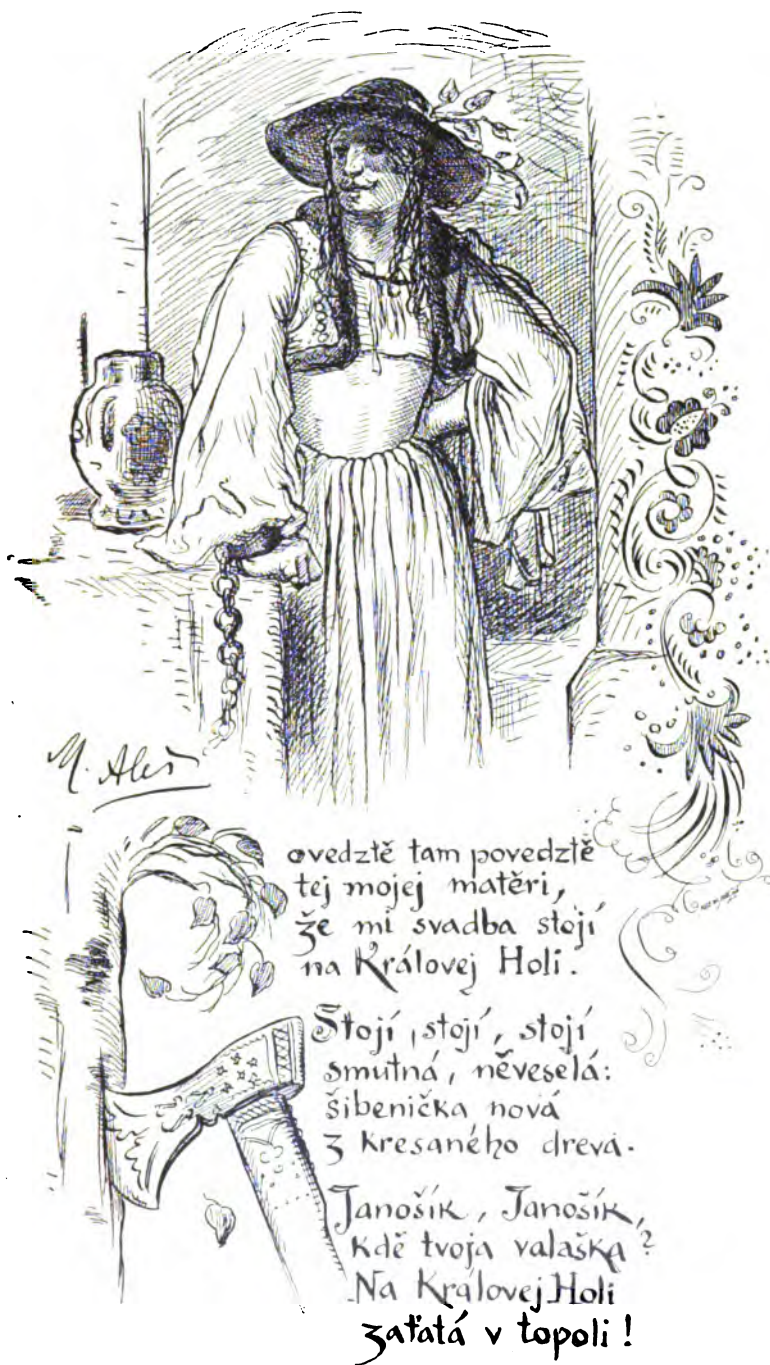 M. Aleš
Povedztě tam povedztě
tej mojej matěri,
že mi svadba stojí
na Královej Holi.
Stojí, stojí, stojí
smutná, něveselá:
šibenička nová
z kresaného dreva.
Janošík, Janošík,
kdě tvoja valaška?
Na Královej Holi
zaťatá v topoli!